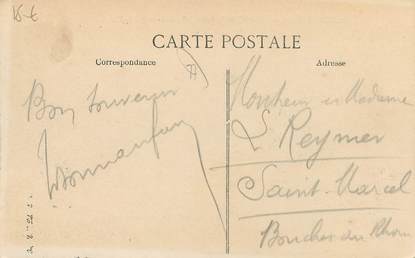 15 €
CARTE POSTALE
Correspondance
Adresse
Bon souvenir
Monsieur et Madame
L Reymer
Saint-Marcel
Bouches du Rhône